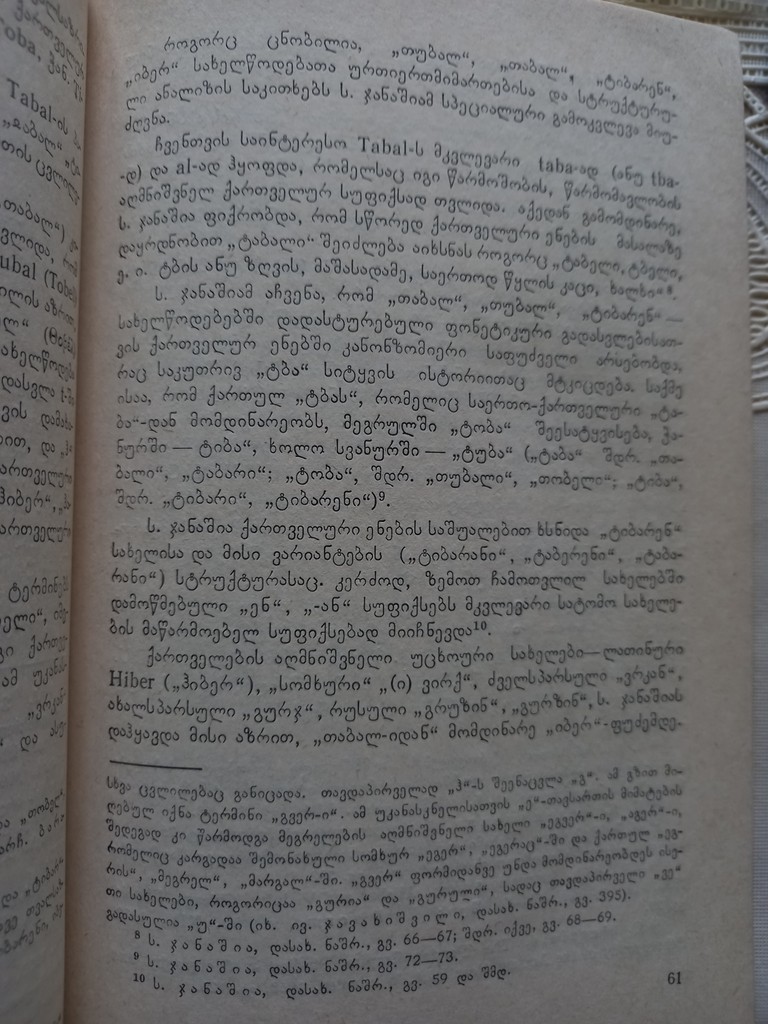 როგორც ცნობილია, „თუბალ“, „თაბალ“, „ტიბარენ“,
„იბერ“ სახელწოდებათა ურთიერთმიმართებისა და სტრუქტურუ-
ლი ანალიზის საკითხებს ს. ჯანაშიამ სპეციალური გამოკვლევა მიუ-
ძღვნა.
ჩვენთვის საინტერესო Tabal-ს მკვლევარი taba-ად (ანუ tba-
-დ) და al-ად ჰყოფდა, რომელსაც იგი წარმოშობის, წარმომავლობის
აღმნიშვნელ ქართველურ სუფიქსად თვლიდა. აქედან გამომდინარე,
ს. ჯანაშია ფიქრობდა, რომ სწორედ ქართველური ენების მასალაზე
დაყრდნობით „ტაბალი“ შეიძლება აიხსნას როგორც „ტაბელი, ტბელი,
ე. ი. ტბის ანუ ზღვის, მაშასადამე, საერთოდ წყლის კაცი, ხალხი“⁸.
ს. ჯანაშიამ აჩვენა, რომ „თაბალ“, „თუბალ“, „ტიბარენ“ —
სახელწოდებებში დადასტურებული ფონეტიკური გადასვლებისათ-
ვის ქართველურ ენებში კანონზომიერი საფუძველი არსებობდა,
რაც საკუთრივ „ტბა“ სიტყვის ისტორიითაც მტკიცდება. საქმე
ისაა, რომ ქართულ „ტბას“, რომელიც საერთო-ქართველური „ტა-
ბა“-დან მომდინარეობს, მეგრულში „ტობა“ შეესატყვისება, ჭა-
ნურში — ტიბა“, ხოლო სვანურში — „ტუბა“ („ტაბა“ შდრ. „თა-
ბალი“, „ტაბარი“; „ტობა“, შდრ. „თუბალი“, „თობელი“; „ტიბა“,
შდრ. „ტიბარი“, „ტიბარენი“)⁹.
ს. ჯანაშია ქართველური ენების საშუალებით ხსნიდა „ტიბარენ“
სახელისა და მისი ვარიანტების („ტიბარანი“, „ტაბერენი“, „ტაბა-
რანი“) სტრუქტურასაც. კერძოდ, ზემოთ ჩამოთვლილ სახელებში
დამოწმებული „ენ“, „-ან“ სუფიქსებს მკვლევარი სატომო სახელე-
ბის მაწარმოებელ სუფიქსებად მიიჩნევდა¹⁰.
ქართველების აღმნიშვნელი უცხოური სახელები—ლათინური
Hiber („ჰიბერ“), „სომხური“ „(ი) ვირქ“, ძველსპარსული „ვრკან“,
ახალსპარსული „გურჯ“, რუსული „გრუზინ“, „გურზინ“, ს. ჯანაშიას
დაჰყავდა მისი აზრით, „თაბალ-იდან“ მომდინარე „იბერ“-ფუძემდე.
სხვა ცვლილებაც განიცადა. თავდაპირველად „ჰ“-ს შეენაცვლა „გ“. ამ გზით მი-
ღებულ იქნა ტერმინი „გვერ-ი“. ამ უკანასკნელისათვის „ე“-თავსართის მიმატების
შედეგად კი წარმოდგა მეგრელების აღმნიშვნელი სახელი „ეგვერ“-ი, „აგერ“-ი,
რომელიც კარგადაა შემონახული სომხურ „ეგერ“, „ეგერაც“-ში და ქართულ „ეგ-
რის“, „მეგრელ“, „მარგალ“-ში. „გვერ“ ფორმიდანვე უნდა მომდინარეობდეს ისე-
თი სახელები, როგორიცაა „გურია“ და „გურული“, სადაც თავდაპირველი „ვე“
გადასულია „უ“-ში (იხ. ივ. ჯავახიშვილი, დასახ. ნაშრ., გვ. 395).
⁸ ს. ჯანაშია, დასახ. ნაშრ., გვ. 66—67; შდრ. იქვე, გვ. 68—69.
⁹ ს. ჯანაშია, დასახ. ნაშრ., გვ. 72—73.
¹⁰ ს. ჯანაშია, დასახ. ნაშრ., გვ. 59 და შმდ.
61